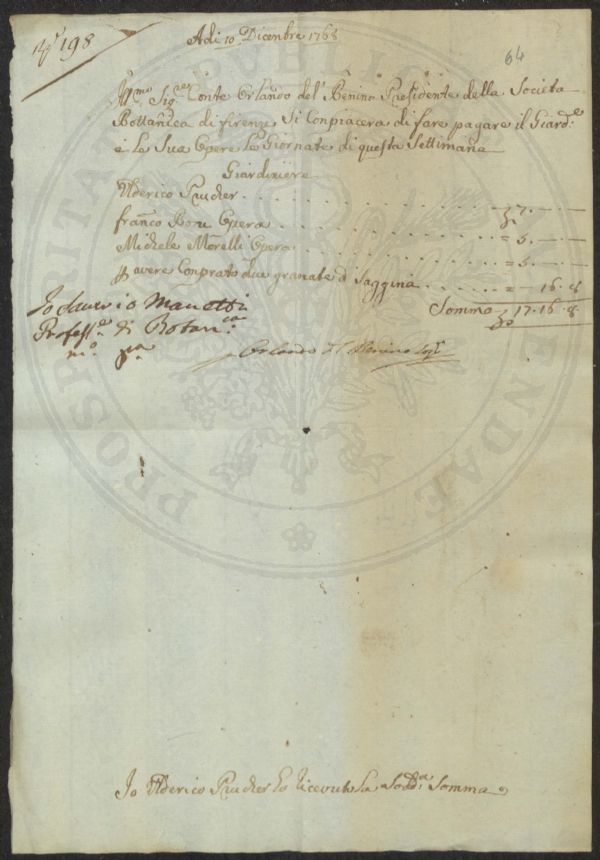 N° 198
Adi 10 Dicenbre 1768
64
Ill:mo Sig:re Conte Orlando del Benino Presidente della Societa
Bottanica di firenze Si Conpiacera di fare pagare il Giard:e
e Le Sua Opere Le Giornate di questa Settimana
Giardiniere
Ulderico Prucher . . . . . . . . 7. —
franco Boru Opera . . . . . . . = 5. —
Michele Morelli Opera . . . . . . = 5. —
p avere Conprato due granate d Saggina . . . . = — 16. 8
Somma 17. 16. 8
Io Saverio Manetti
Profess:re di Botan:ca
m:o p:a
Orlando del Benino
Io Ulderico Prucher ho riceuto La Sodd:a Somma
PROSPERITATI PUBLICAE AUGENDAE